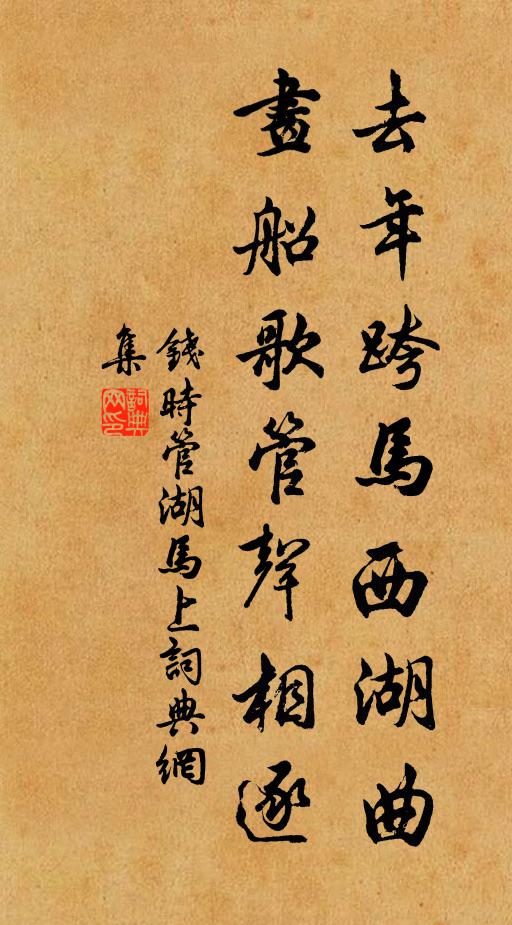 去年跨馬西湖曲
畫船歌管聲相逐
錢時管湖馬上詞典網
集
詞典網印